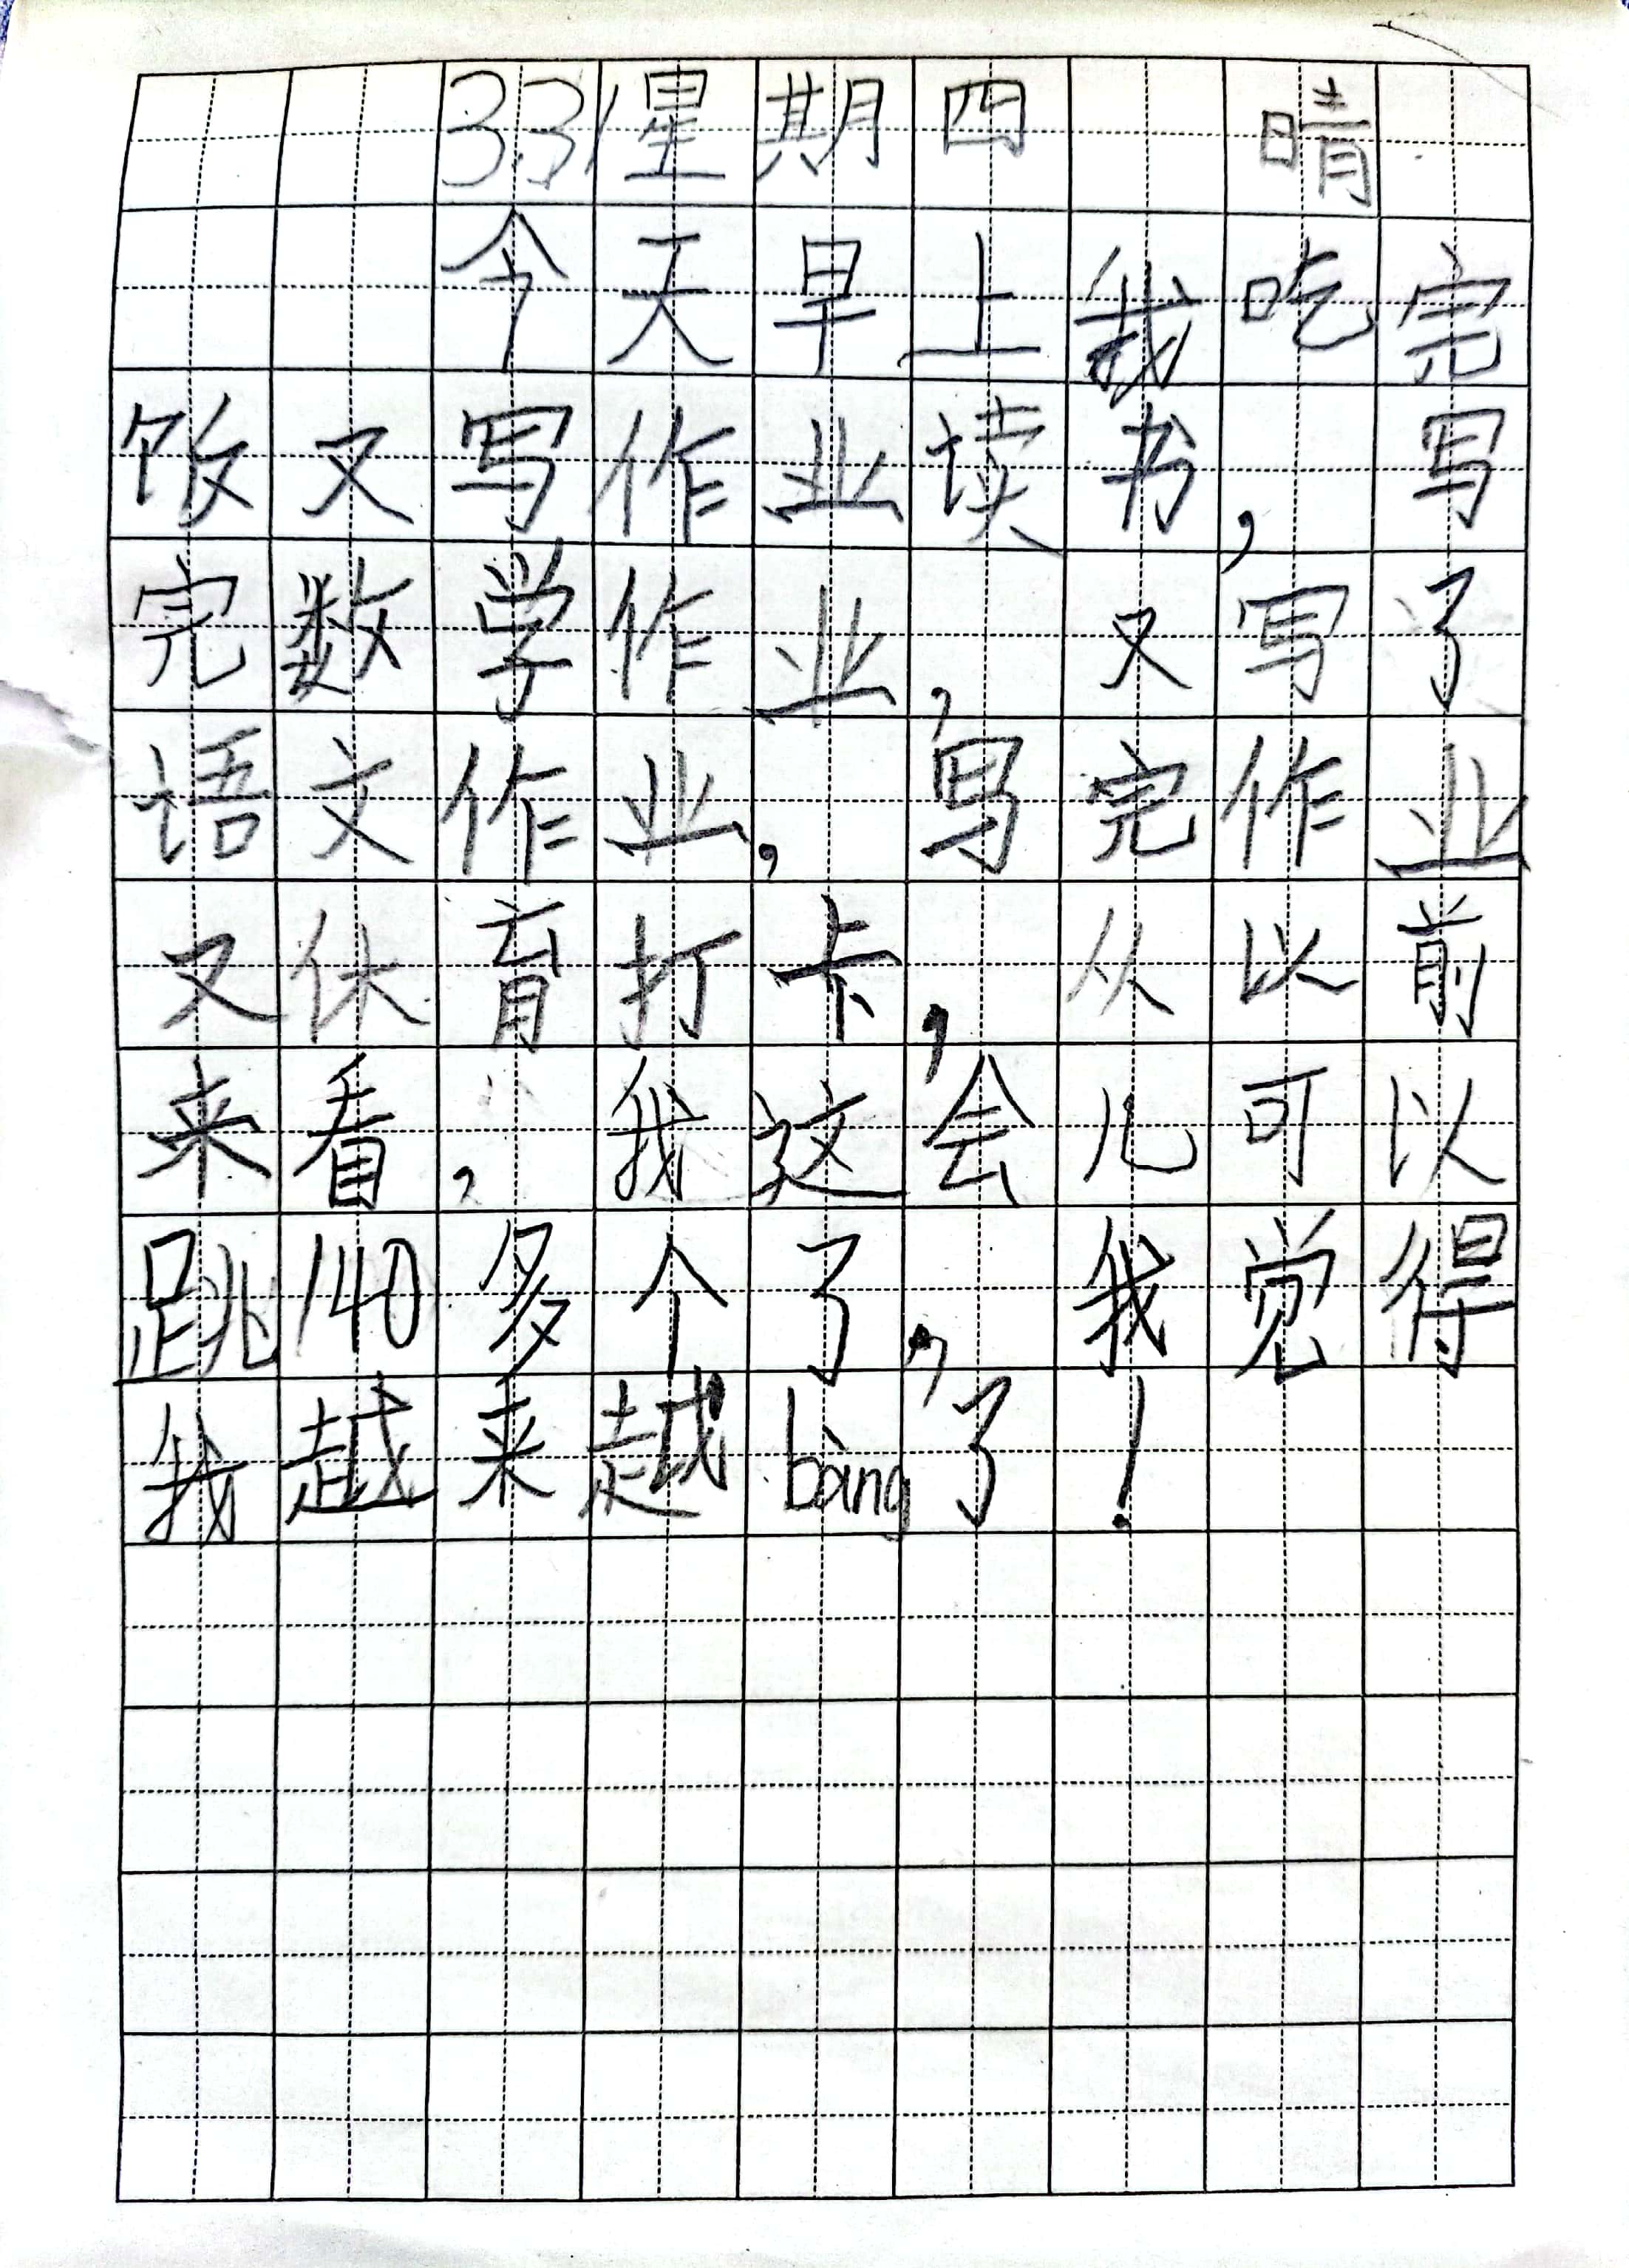 3.31星期四 晴
今天早上我吃完
饭又写作业读书,写
完数学作业,又写了
语文作业,写完作业
又体育打卡,从以前
来看,我这会儿可以
跳140多个了,我觉得
我越来越bàng了!